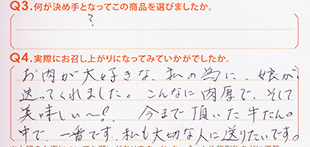 Q3.何が決め手となってこの商品を選びましたか。
?
Q4.実際にお召し上がりになってみていかがでしたか。
お肉が大好きな、私の為に、娘が
送ってくれました。こんなに肉厚で、そして
美味しい〜!。今まで頂いた牛たんの
中で、一番です。私も大切な人に送りたいです。